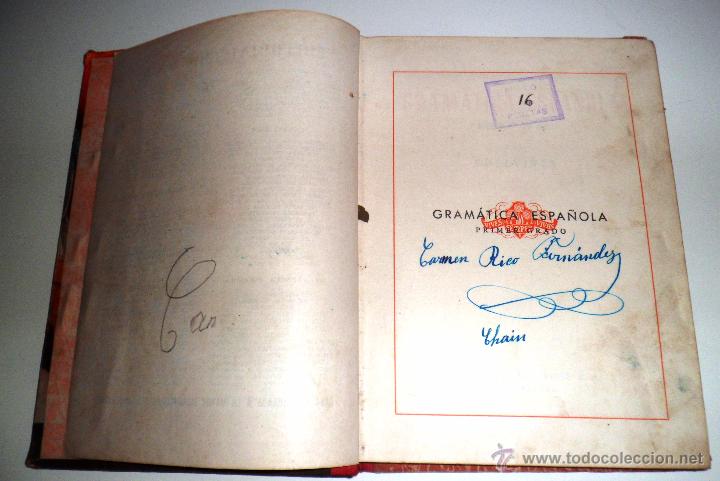 Car
16
PESETAS
GRAMÁTICA ESPAÑOLA
PRIMER GRADO
Carmen Rico Fernández
Chain
todocoleccion.net